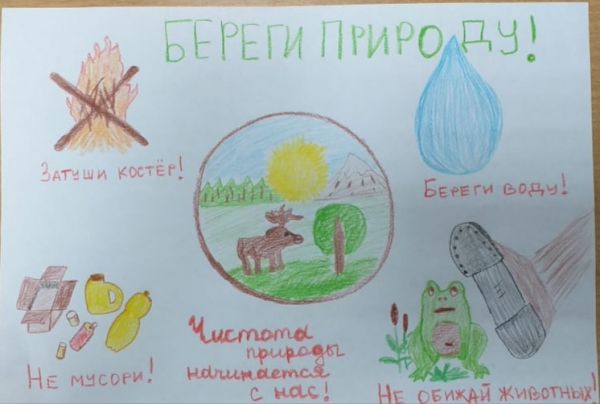 БЕРЕГИ ПРИРОДУ!
ЗАТУШИ КОСТЁР!
БЕРЕГИ ВОДУ!
НЕ МУСОРИ!
Чистота
природы
начинается
с нас!
НЕ ОБИЖАЙ ЖИВОТНЫХ!